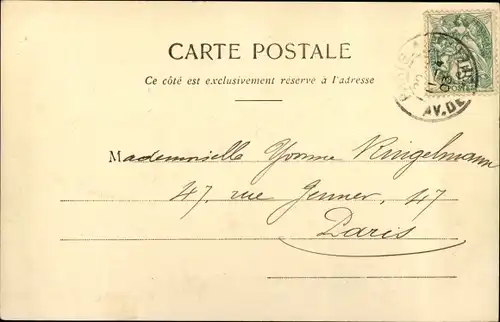 CARTE POSTALE
Ce côté est exclusivement réservé à l'adresse
Mademoiselle Yvonne Ringelmann
47, rue Jenner, 47
Paris
AV. DE
POSTES